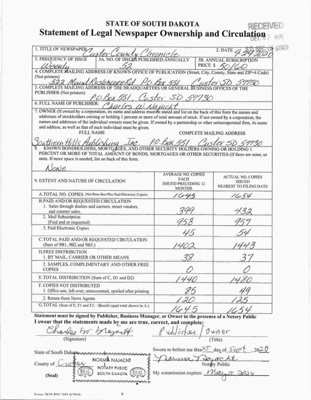 STATE OF SOUTH DAKOTA
RECEIVED
Statement of Legal Newspaper Ownership and Circulation
1. TITLE OF NEWSPAPER Custer County Chronicle 2. DATE
3. FREQUENCY OF ISSUE Weekly 3A. NO. OF ISSUES PUBLISHED ANNUALLY 52 3B. ANNUAL SUBSCRIPTION PRICE $ 50/60
4. COMPLETE MAILING ADDRESS OF KNOWN OFFICE OF PUBLICATION (Street, City, County, State and ZIP+4 Code)
(Not printers) 522 Mount Rushmore Rd. PO Box 551 Custer SD 57730
5. COMPLETE MAILING ADDRESS OF THE HEADQUARTERS OR GENERAL BUSINESS OFFICES OF THE
PUBLISHER (Not printers) P.O. Box 551, Custer SD 57730
6. FULL NAME OF PUBLISHER: Charles W. Najacht
7. OWNER (If owned by a corporation, its name and address must be stated and also on the back of this form the names and
addresses of stockholders owning or holding 1 percent or more of total amount of stock. If not owned by a corporation, the
names and addresses of the individual owners must be given. If owned by a partnership or other unincorporated firm, its name
and address, as well as that of each individual must be given.
FULL NAME COMPLETE MAILING ADDRESS
Southern Hills Publishing Inc. PO Box 551 Custer SD 57730
8. KNOWN BONDHOLDERS, MORTGAGES, AND OTHER SECURITY HOLDERS OWNING OR HOLDING 1
PERCENT OR MORE OF TOTAL AMOUNT OF BONDS, MORTGAGES OR OTHER SECURITIES (If there are none, so
state. If more space is needed, list on back of this form).
None
9. EXTENT AND NATURE OF CIRCULATION
AVERAGE NO. COPIES EACH ISSUED PRECEDING 12 MONTHS
ACTUAL NO. COPIES ISSUED NEAREST TO FILING DATE
A. TOTAL NO. COPIES 1645 1654
B. PAID AND/OR REQUESTED CIRCULATION
1. Sales through dealers and carriers, street vendors,
and counter sales. 399 432
2. Mail Subscription
(Paid and or requested) 958 957
3. Paid Electronic Copies 45 54
C. TOTAL PAID AND/OR REQUESTED CIRCULATION
(Sum of 9B1, 9B2 and 9B3.) 1402 1443
D. FREE DISTRIBUTION
1. BY MAIL, CARRIER OR OTHER MEANS 38 37
2. SAMPLES, COMPLIMENTARY AND OTHER FREE
COPIES 0 0
E. TOTAL DISTRIBUTION (Sum of C, D1 and D2) 1440 1480
F. COPIES NOT DISTRIBUTED
1. Office use, left over, unaccounted, spoiled after printing 85 49
2. Return from News Agents 120 125
G. TOTAL (Sum of E, F1 and F2 - Should equal total shown in A.) 1645 1654
Statement must be signed by Publisher, Business Manager, or Owner in the presence of a Notary Public
I swear that the statements made by me are true, correct, and complete:
Publisher/Owner
(Signature) (Title)
State of South Dakota
Sworn to before me this day of Sept, 2020
County of Custer
Notary Public
(Seal)
NORMA NAJACHT
NOTARY PUBLIC
SOUTH DAKOTA
My commission expires: